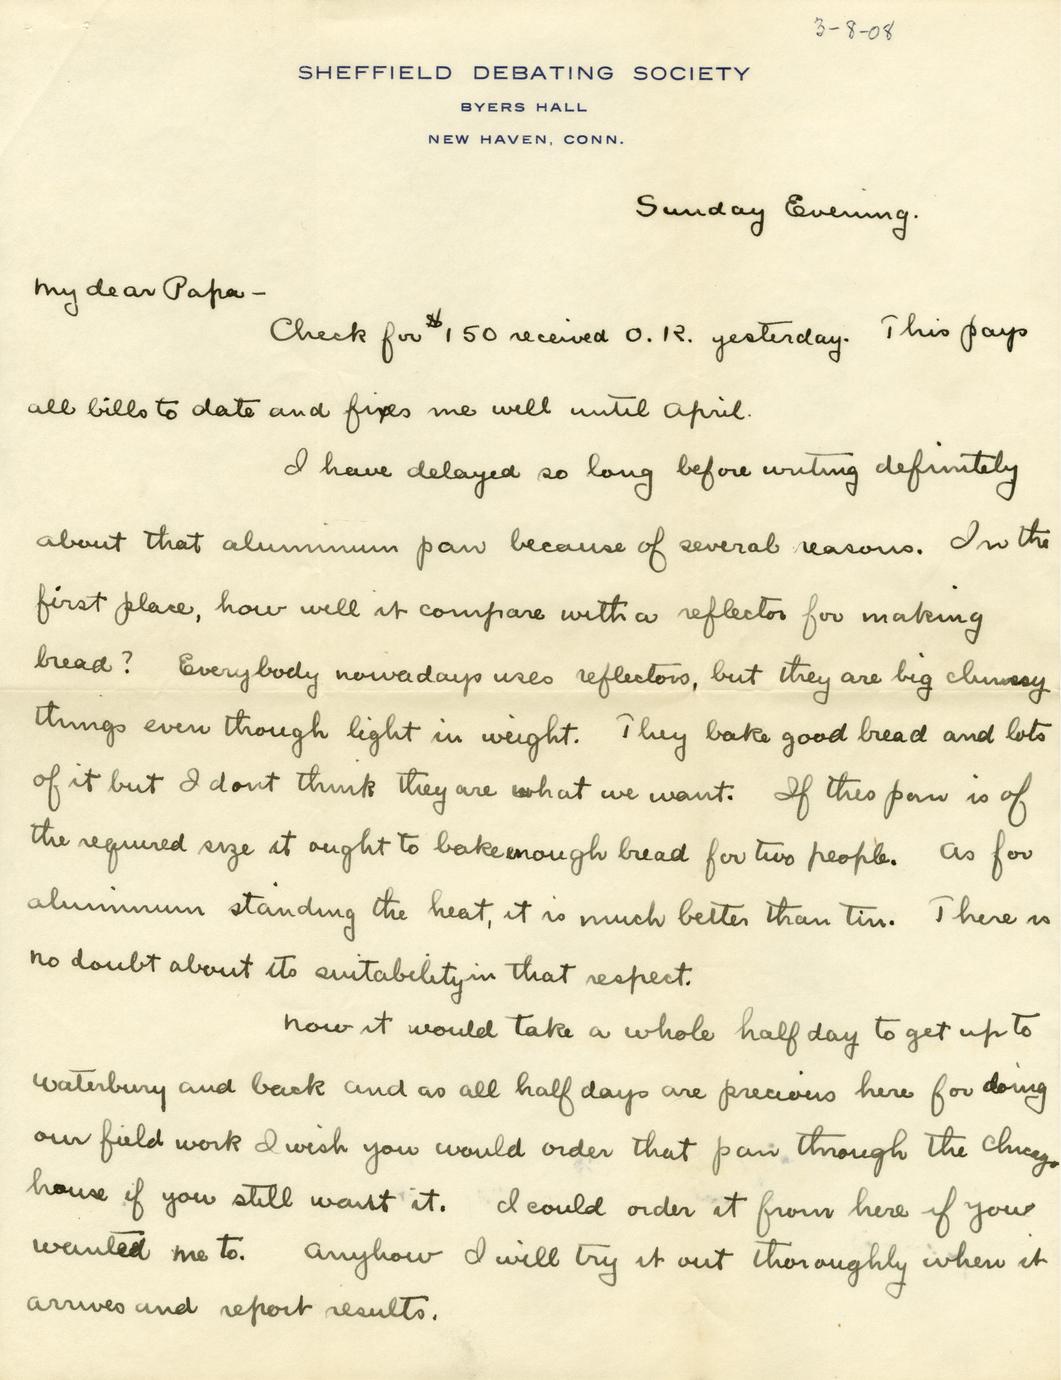 3-8-08
SHEFFIELD DEBATING SOCIETY
BYERS HALL
NEW HAVEN, CONN.
Sunday Evening.
My dear Papa -
Check for $150 received O.K. yesterday. This pays
all bills to date and fixes me well until April.
I have delayed so long before writing definitely
about that aluminum pan because of several reasons. In the
first place, how will it compare with a reflector for making
bread? Everybody nowadays uses reflectors, but they are big clumsy
things even though light in weight. They bake good bread and lots
of it but I dont think they are what we want. If this pan is of
the required size it ought to bake enough bread for two people. As for
aluminum standing the heat, it is much better than tin. There is
no doubt about its suitability in that respect.
Now it would take a whole half day to get up to
Waterbury and back and as all half days are precious here for doing
our field work I wish you would order that pan through the Chicago
house if you still want it. I could order it from here if you
wanted me to. Anyhow I will try it out thoroughly when it
arrives and report results.